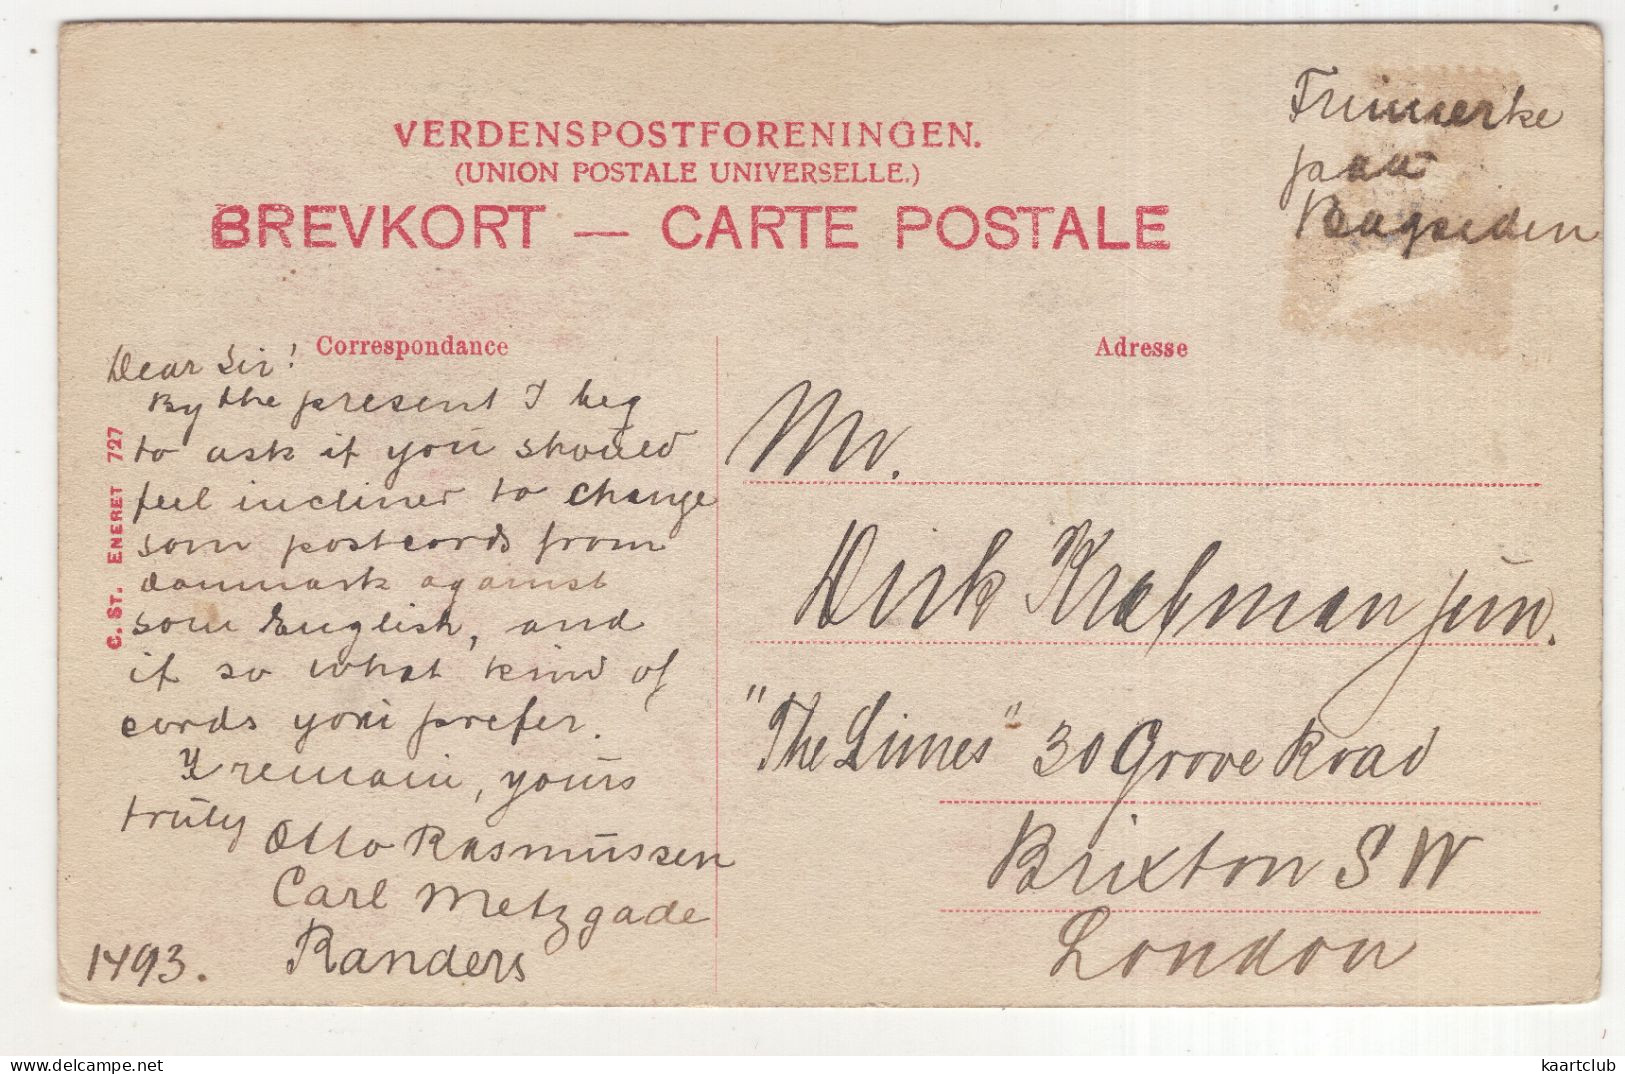 VERDENSPOSTFORENINGEN.
(UNION POSTALE UNIVERSELLE.)
BREVKORT — CARTE POSTALE
Frimerke
paa
Bagsiden
Correspondance
Dear Sir!
By the present I beg
to ask if you should
feel inclined to change
som postcards from
danmark against
som English, and
if so what kind of
cards you prefer.
I remain, yours
truly
Otto Rasmussen
Carl Metzgade
Randers
1493.
C. ST. ENERET 727
Adresse
Mr.
Dirk jun.
"The Limes" 30 Grove Road
Brixton S W
London
kaartclub
www.delcampe.net